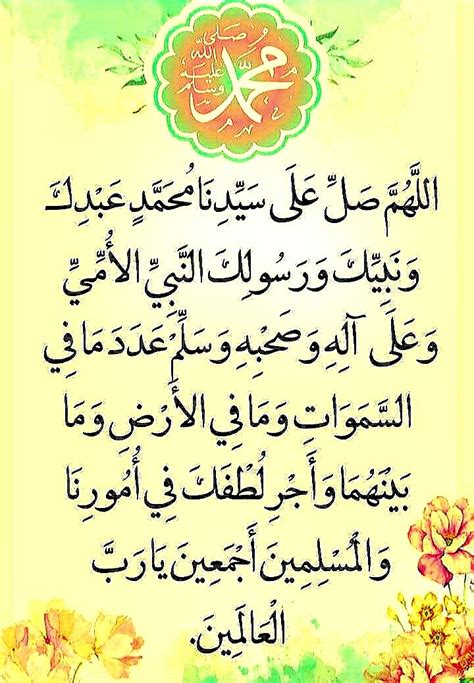 محمد صلى الله عليه وسلم
اللَّهُمَّ صَلِّ عَلَى سَيِّدِنَا مُحَمَّدٍ عَبْدِكَ
وَنَبِيِّكَ وَرَسُولِكَ النَّبِيِّ الأُمِّيِّ
وَعَلَى آلِهِ وَصَحْبِهِ وَسَلِّمْ عَدَدَ مَا فِي
السَّمَوَاتِ وَمَا فِي الأَرْضِ وَمَا
بَيْنَهُمَا وَأَجْرِ لُطْفَكَ فِي أُمُورِنَا
وَالْمُسْلِمِينَ أَجْمَعِينَ يَا رَبَّ
الْعَالَمِينَ.